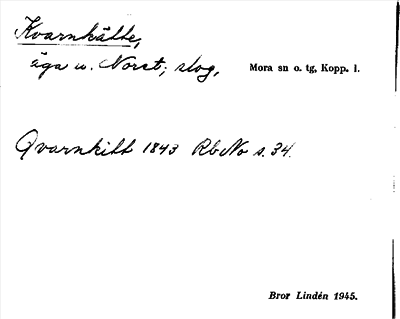 Kvarnkälle,
äga u. Noret; slog,
Mora sn o. tg, Kopp. l.
Qvarnkitt 1843 Rb No s. 34.
Bror Lindén 1945.